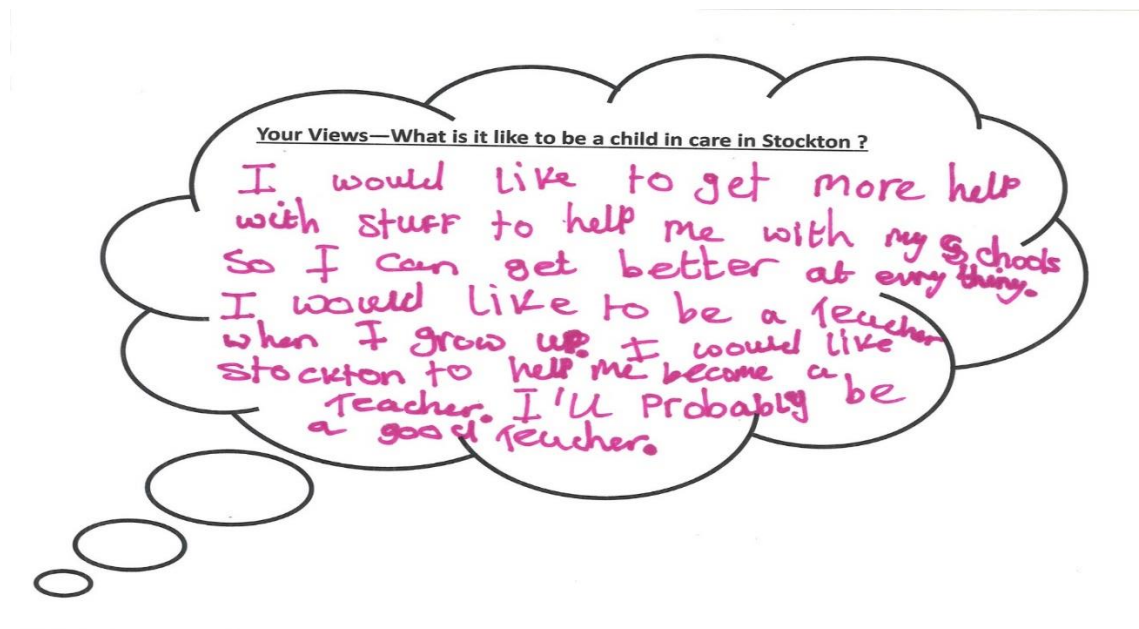 Your Views—What is it like to be a child in care in Stockton ?
I would like to get more help
with stuff to help me with my schools
so I can get better at evry thing.
I would like to be a Teacher
when I grow up. I would like
stockton to help me become a
Teacher. I'll Probably be
a good Teacher.